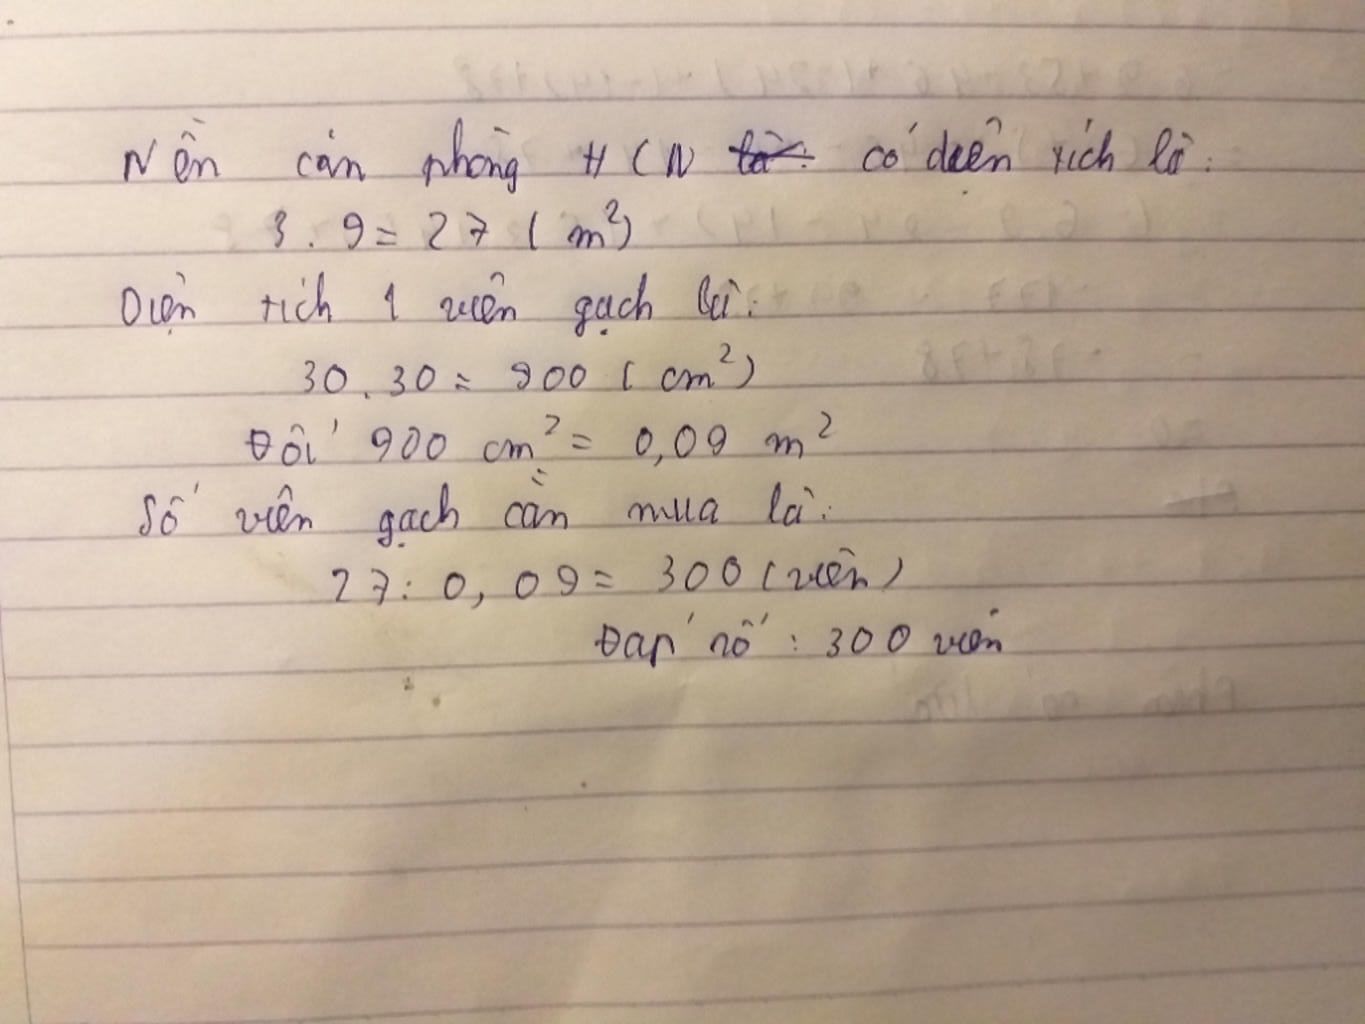 Nền căn phòng HCN là: có diện tích là:
3.9=27 (m²)
Diện tích 1 viên gạch là:
30.30= 900 (cm²)
Đổi 900 cm² = 0,09 m²
Số viên gạch cần mua là:
27: 0,09= 300 (viên)
Đáp số : 300 viên